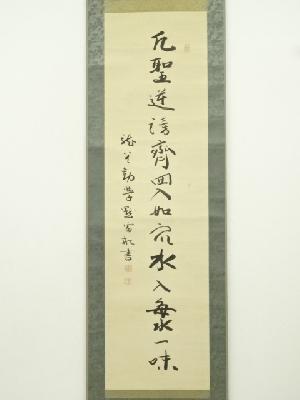 凡聖逆謗齊回入如衆水入海一味
勧学
書